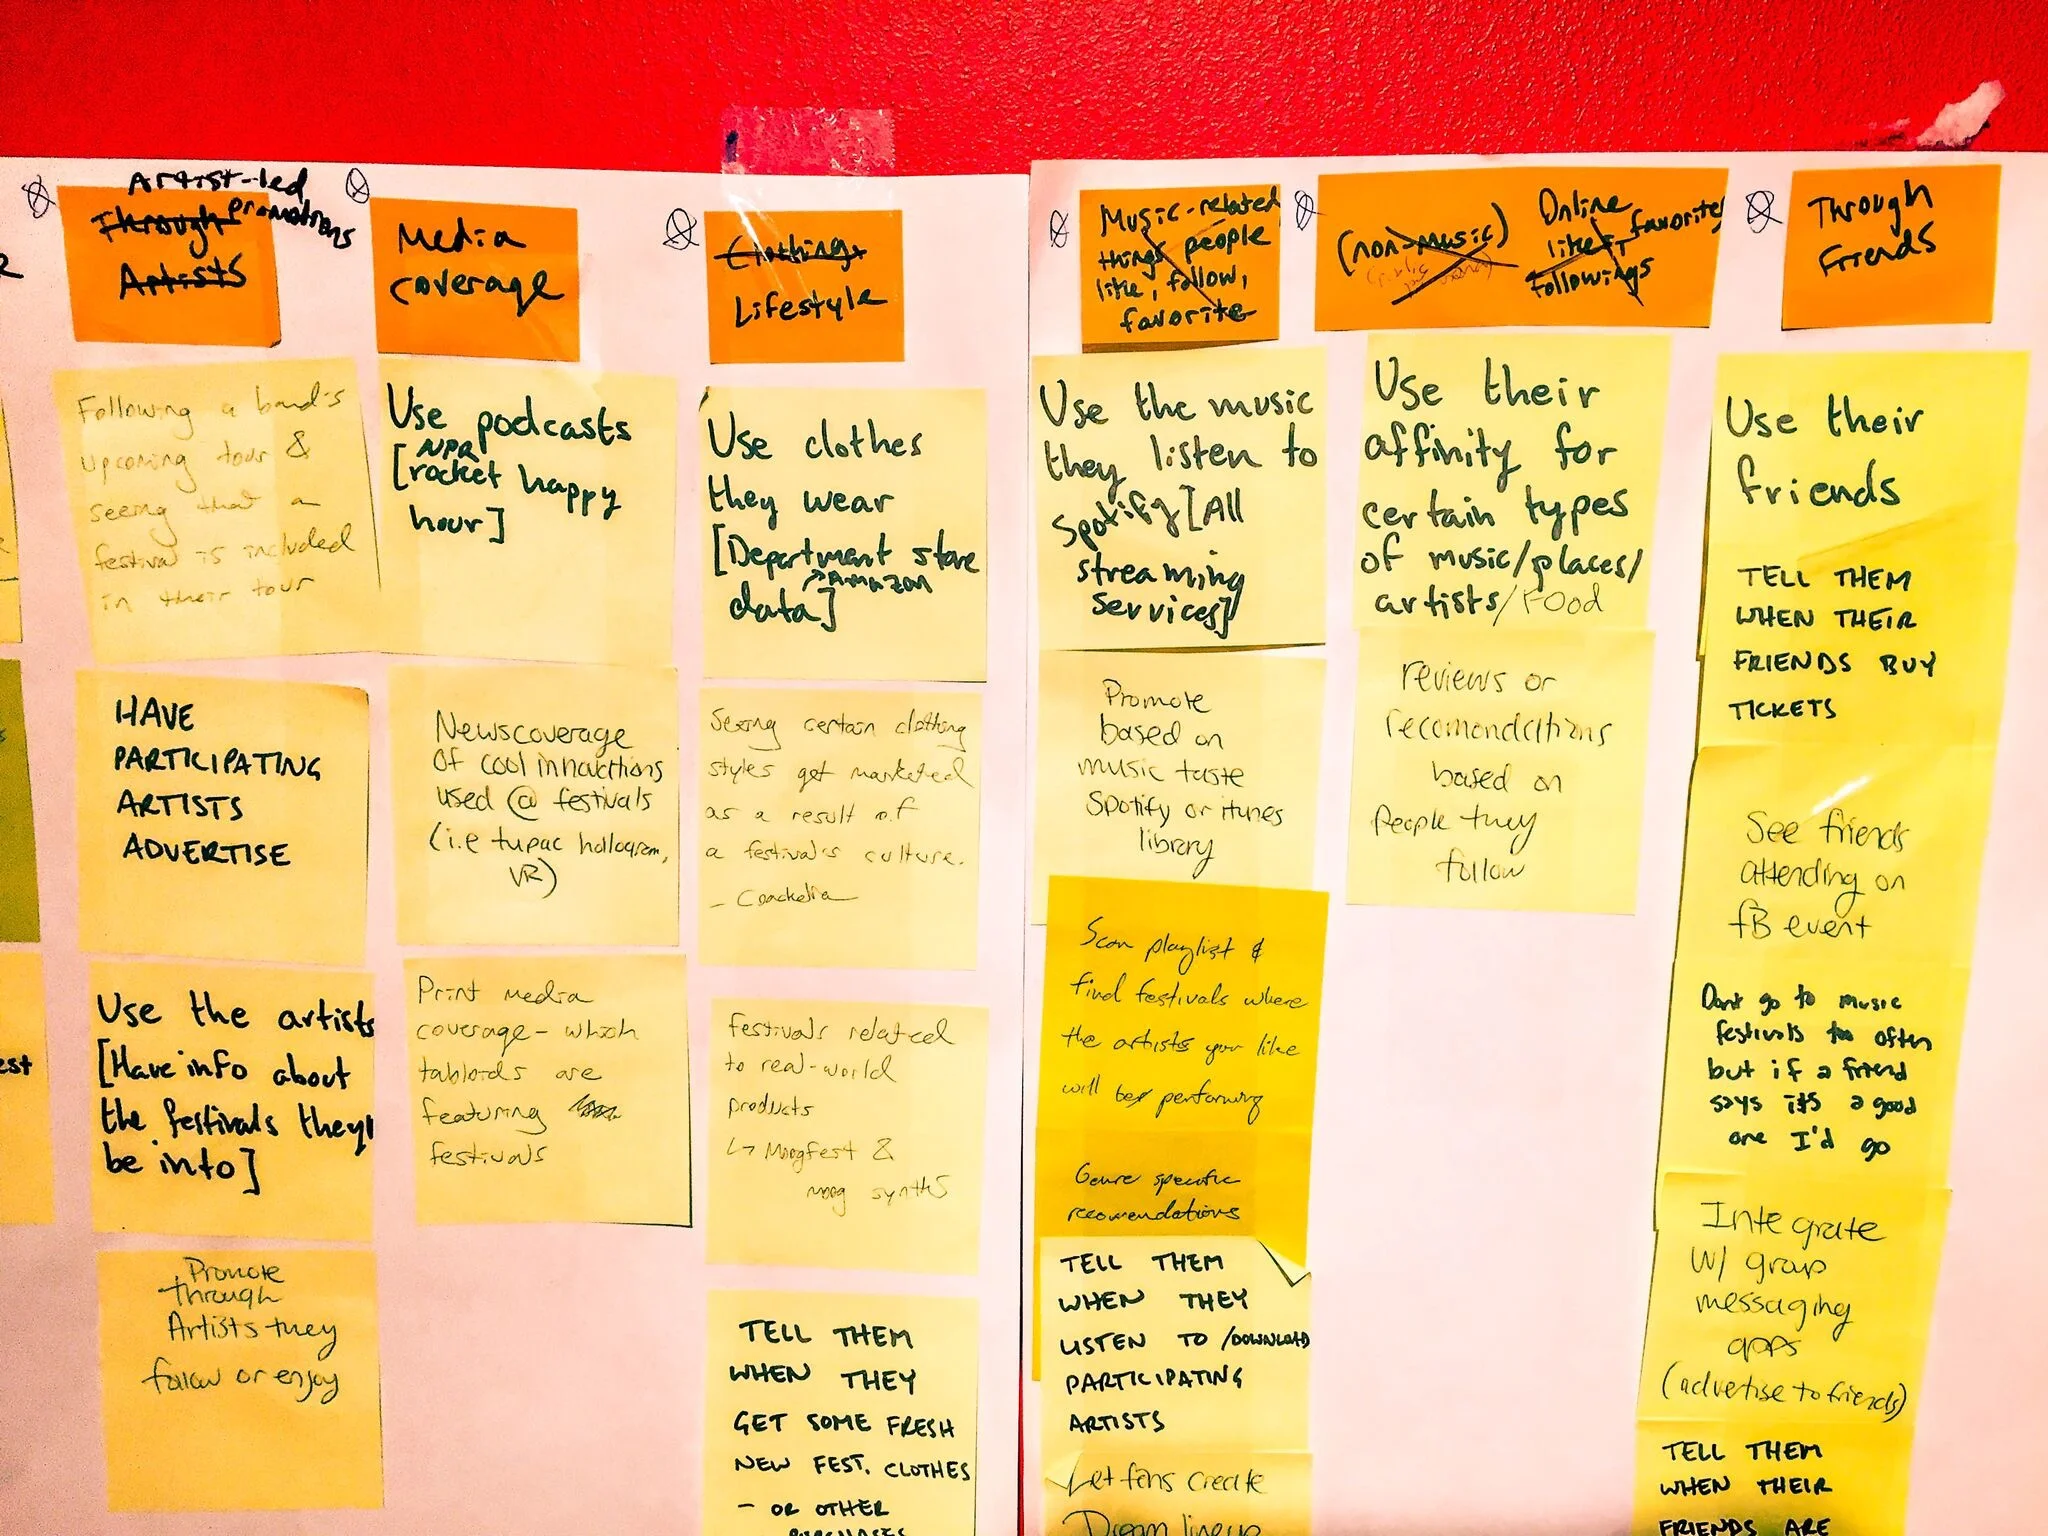 Artist-led
promotions
Through
Artists
Following a band's
upcoming tour &
seeing that a
festival is included
in their tour
HAVE
PARTICIPATING
ARTISTS
ADVERTISE
Use the artists
[Have info about
the festivals they'll
be into]
Promote
through
Artists they
follow or enjoy
Media
coverage
Use podcasts
NPR
[rocket happy
hour]
Newscoverage
of cool innovations
used @ festivals
(i.e tupac hollogram,
VR)
Print media
coverage- which
tabloids are
featuring
festivals
Clothing
Lifestyle
Use clothes
they wear
[Department store
Amazon
data]
Seeing certain clothing
styles get marketed
as a result of
a festival's culture.
- Coachella
Festivals related
to real-world
products
↳ Moogfest &
moog synths
TELL THEM
WHEN THEY
GET SOME FRESH
NEW FEST. CLOTHES
- OR OTHER
PURCHASES
Music-related
things people
like, follow,
favorite
Use the music
they listen to
Spotify [All
streaming
services]
Promote
based on
music taste
Spotify or itunes
library
Scan playlist &
find festivals where
the artists you like
will be performing
Genre specific
recomendations
TELL THEM
WHEN THEY
LISTEN TO /DOWNLOAD
PARTICIPATING
ARTISTS
Let fans create
Dream lineup
(non-music)
Online
likes, favorites
Followings
Use their
affinity for
certain types
of music/places/
artists/FOOD
reviews or
recomondations
based on
People they
follow
Through
Friends
Use their
friends
TELL THEM
WHEN THEIR
FRIENDS BUY
TICKETS
See friends
attending on
fB event
Dont go to music
festivals too often
but if a friend
says its a good
one I'd go
Integrate
w/ group
messaging
apps
(advertise to friends)
TELL THEM
WHEN THEIR
FRIENDS ARE
est